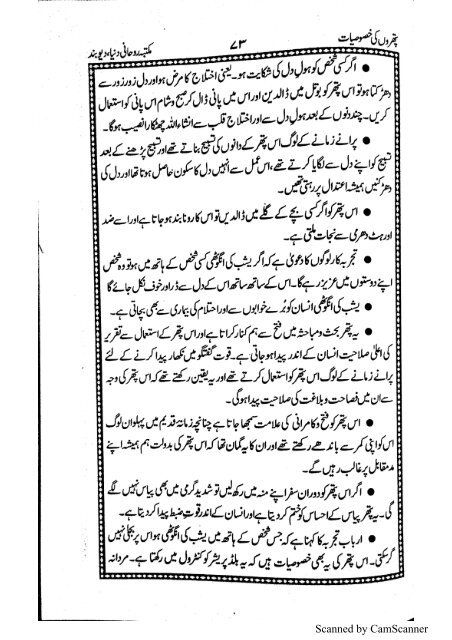 پتھروں کی خصوصیات ۷۳ مکتبہ روحانی دنیا، دیوبند
● اگر کسی شخص کو ہولِ دل کی شکایت ہو۔ یعنی اختلاج کا مرض ہو اور دل زور زور سے
دھڑکتا ہو تو اس پتھر کو بوتل میں ڈالدیں اور اس میں پانی ڈال کر صبح و شام اس پانی کو استعمال
کریں۔ چند دنوں کے بعد ہولِ دل سے اور اختلاج قلب سے انشاءاللہ چھٹکارا نصیب ہوگا۔
● پرانے زمانے کے لوگ اس پتھر کے دانوں کی تسبیح بناتے تھے اور تسبیح پڑھنے کے بعد
تسبیح کو اپنے دل سے لگایا کرتے تھے، اس عمل سے انہیں دل کا سکون حاصل ہوتا تھا اور دل کی
دھڑکنیں ہمیشہ اعتدال پر رہتی تھیں۔
● اس پتھر کو اگر کسی بچے کے گلے میں ڈالدیں تو اس کا رونا بند ہو جاتا ہے اور اسے ضد
اور ہٹ دھرمی سے نجات ملتی ہے۔
● تجربہ کار لوگوں کا دعویٰ ہے کہ اگر یشب کی انگوٹھی کسی شخص کے ہاتھ میں ہو تو وہ شخص
اپنے دوستوں میں عزیز رہے گا۔ اس کے ساتھ ساتھ اس کے دل سے ڈر اور خوف نکل جائے گا
● یشب کی انگوٹھی انسان کو بُرے خوابوں سے اور احتلام کی بیماری سے بھی بچاتی ہے۔
● یہ پتھر بحث و مباحثہ میں فتح سے ہم کنار کراتا ہے اور اس پتھر کے استعمال سے تقریر
کی اعلیٰ صلاحیت انسان کے اندر پیدا ہو جاتی ہے۔ قوت گفتگو میں نکھار پیدا کرنے کے لئے
پرانے زمانے کے لوگ اس پتھر کو استعمال کرتے تھے اور یہ یقین رکھتے تھے کہ اس پتھر کی وجہ
سے ان میں فصاحت و بلاغت کی صلاحیت پیدا ہوگی۔
● اس پتھر کو فتح و کامرانی کی علامت سمجھا جاتا ہے چنانچہ زمانہ قدیم میں پہلوان لوگ
اس کو اپنی کمر سے باندھے رکھتے تھے اور ان کا یہ گمان تھا کہ اس پتھر کی بدولت ہم ہمیشہ اپنے
مدمقابل پر غالب رہیں گے۔
● اگر اس پتھر کو دوران سفر اپنے منہ میں رکھ لیں تو شدید گرمی میں بھی پیاس نہیں لگے
گی۔ یہ پتھر پیاس کے احساس کو ختم کر دیتا ہے اور انسان کے اندر قوت ضبط پیدا کر دیتا ہے۔
● ارباب تجربہ کا کہنا ہے کہ جس شخص کے ہاتھ میں یشب کی انگوٹھی ہو اس پر بجلی نہیں
گر سکتی۔ اس پتھر کی یہ بھی خصوصیات ہیں کہ یہ بلڈ پریشر کو کنٹرول میں رکھتا ہے۔ مردانہ
Scanned by CamScanner